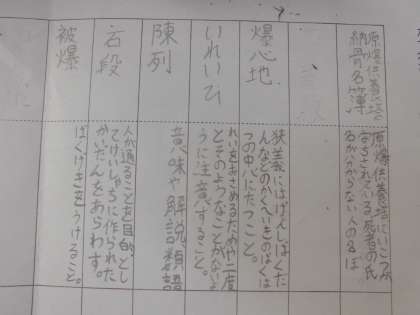 原爆供養塔の
納骨名簿
原爆供養塔にいこつが
安ちされている死者の氏
名が分からない人の名ぼ
爆心地
狭義にはげんしばくだ
んなどのかくへいきのばくは
つの中心にたつこと。
いれいひ
れいをおさめるためや二度
とそのようなことがないよ
うに注意すること。
陳列
意味や解説類語
石段
人が通ることを目的とし
てけいしゃちに作られた
かいだんをあらわす。
被爆
ばくげきをうけること。